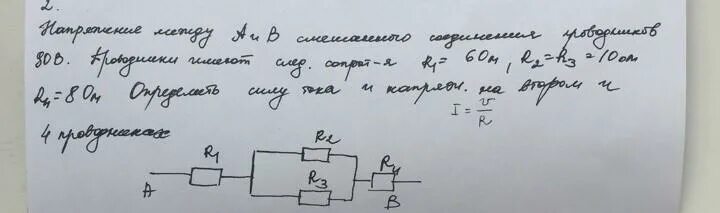 2.
Напряжение между А и В смешанного соединения проводников
90В. Проводники имеют след. сопрот-я R₁ = 6Ом, R₂=R₃=10ом
R₄=8Ом Определить силу тока и напряж. на втором и
I = U/R
4 проводниках
R₁
R₂
R₃
R₄
А
В